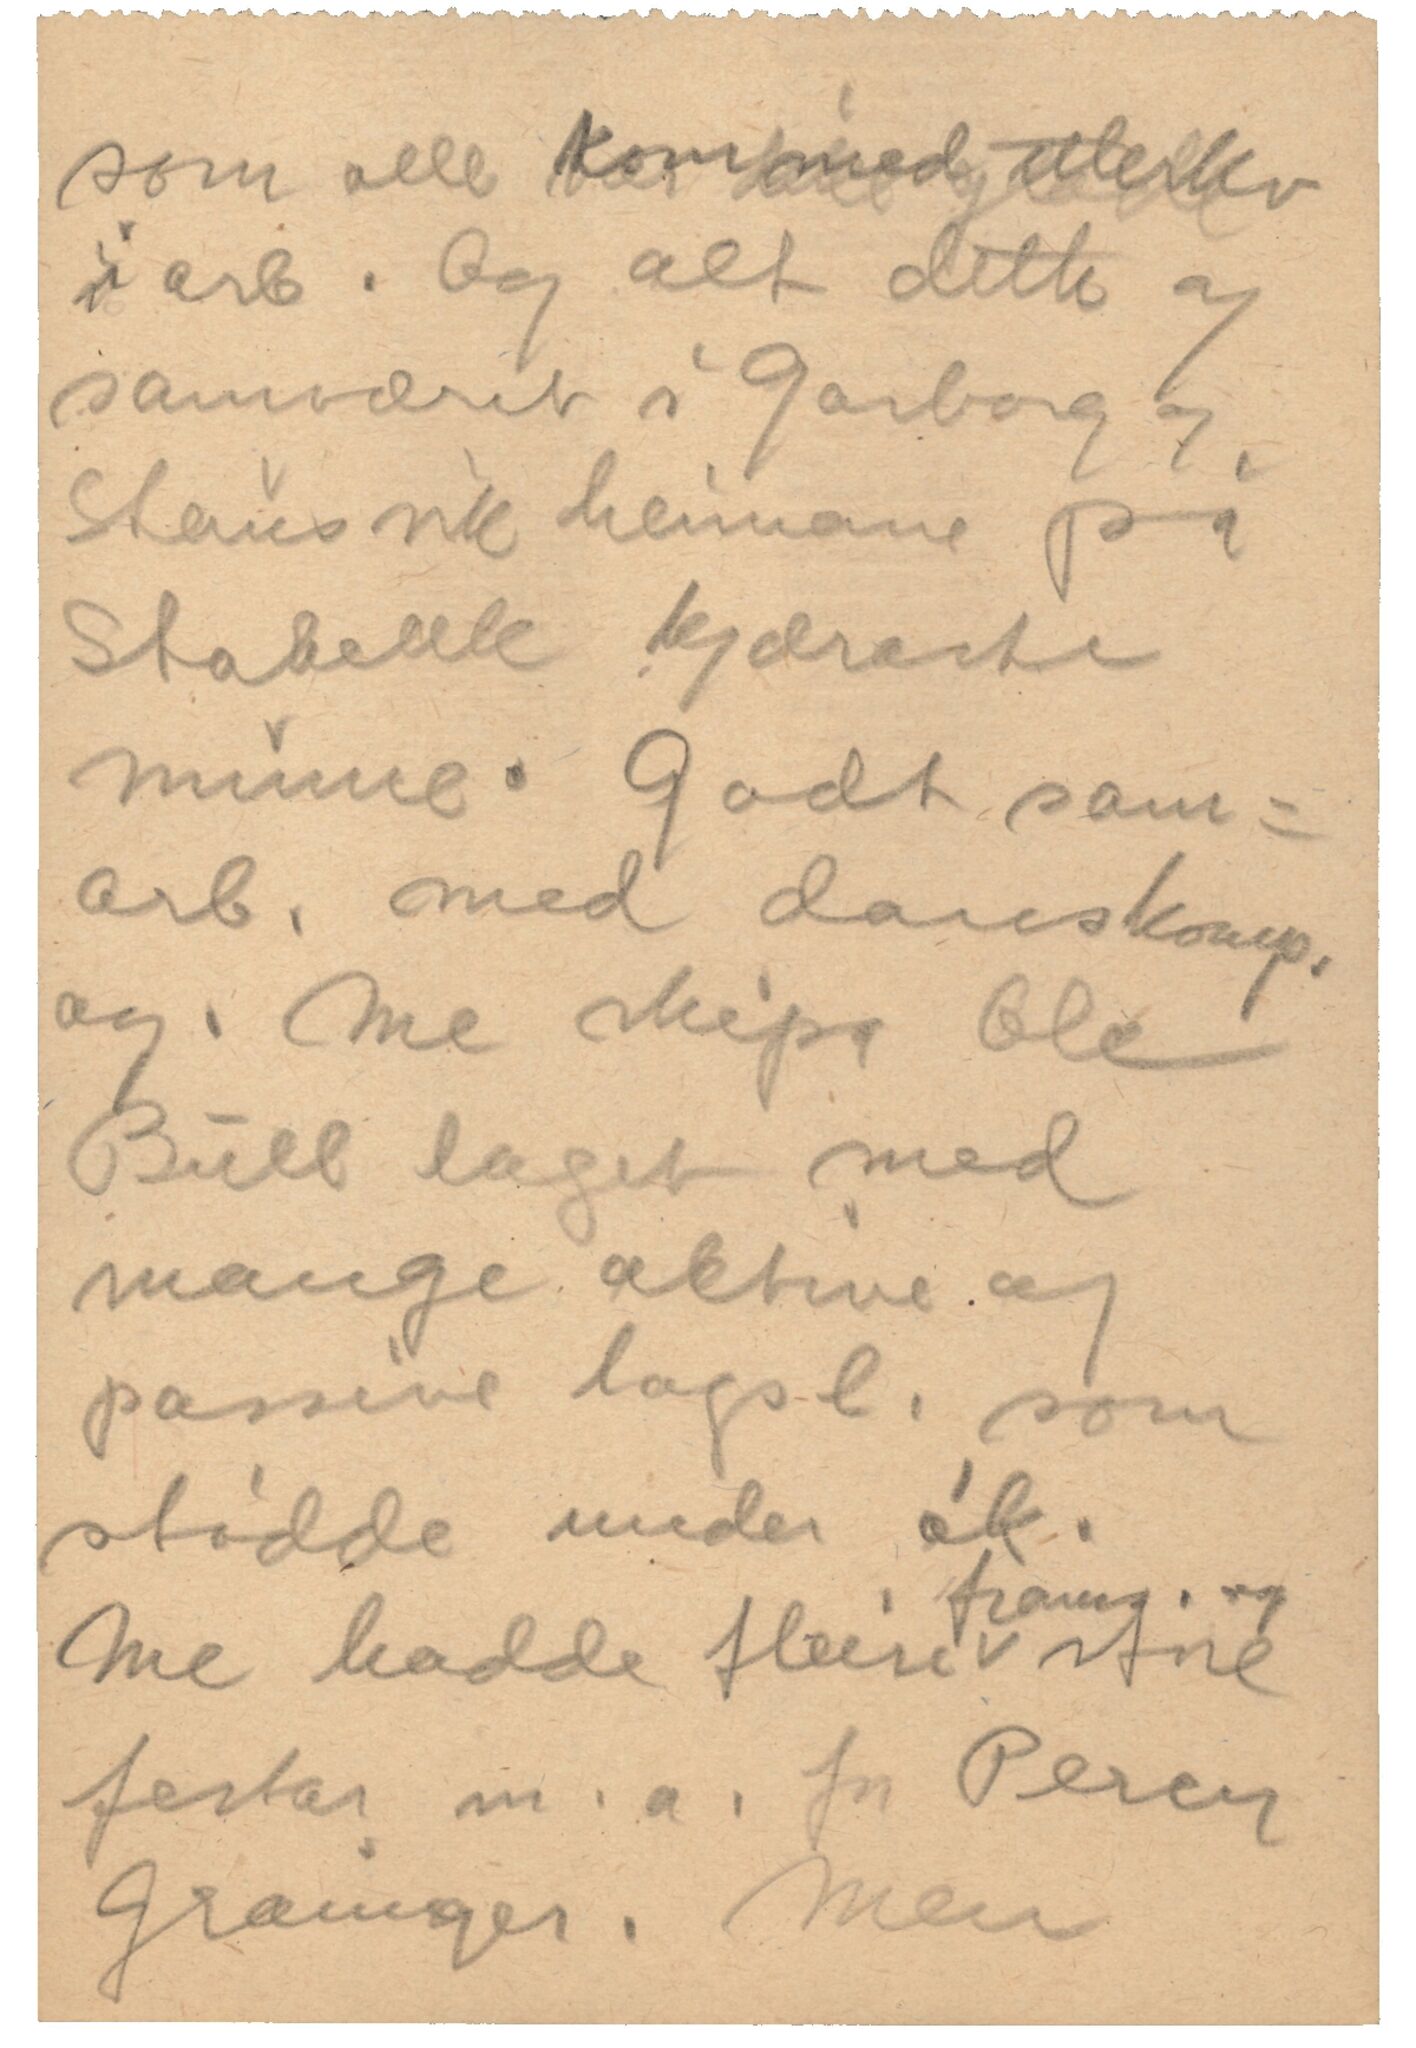 som alle kom med
i arb. Og alt dette og
samværet i Garborg og
Steinsvik heimane på
Stabekk kjæraste
minne. Godt sam=
arb. med dansk komp.
og. Me skipa Ole
Bull laget med
mange aktive og
passive lagsl. som
stødde under øk.
framf. og
Me hadde fleire store
festar m. a. fr Percy
Grainger. Men